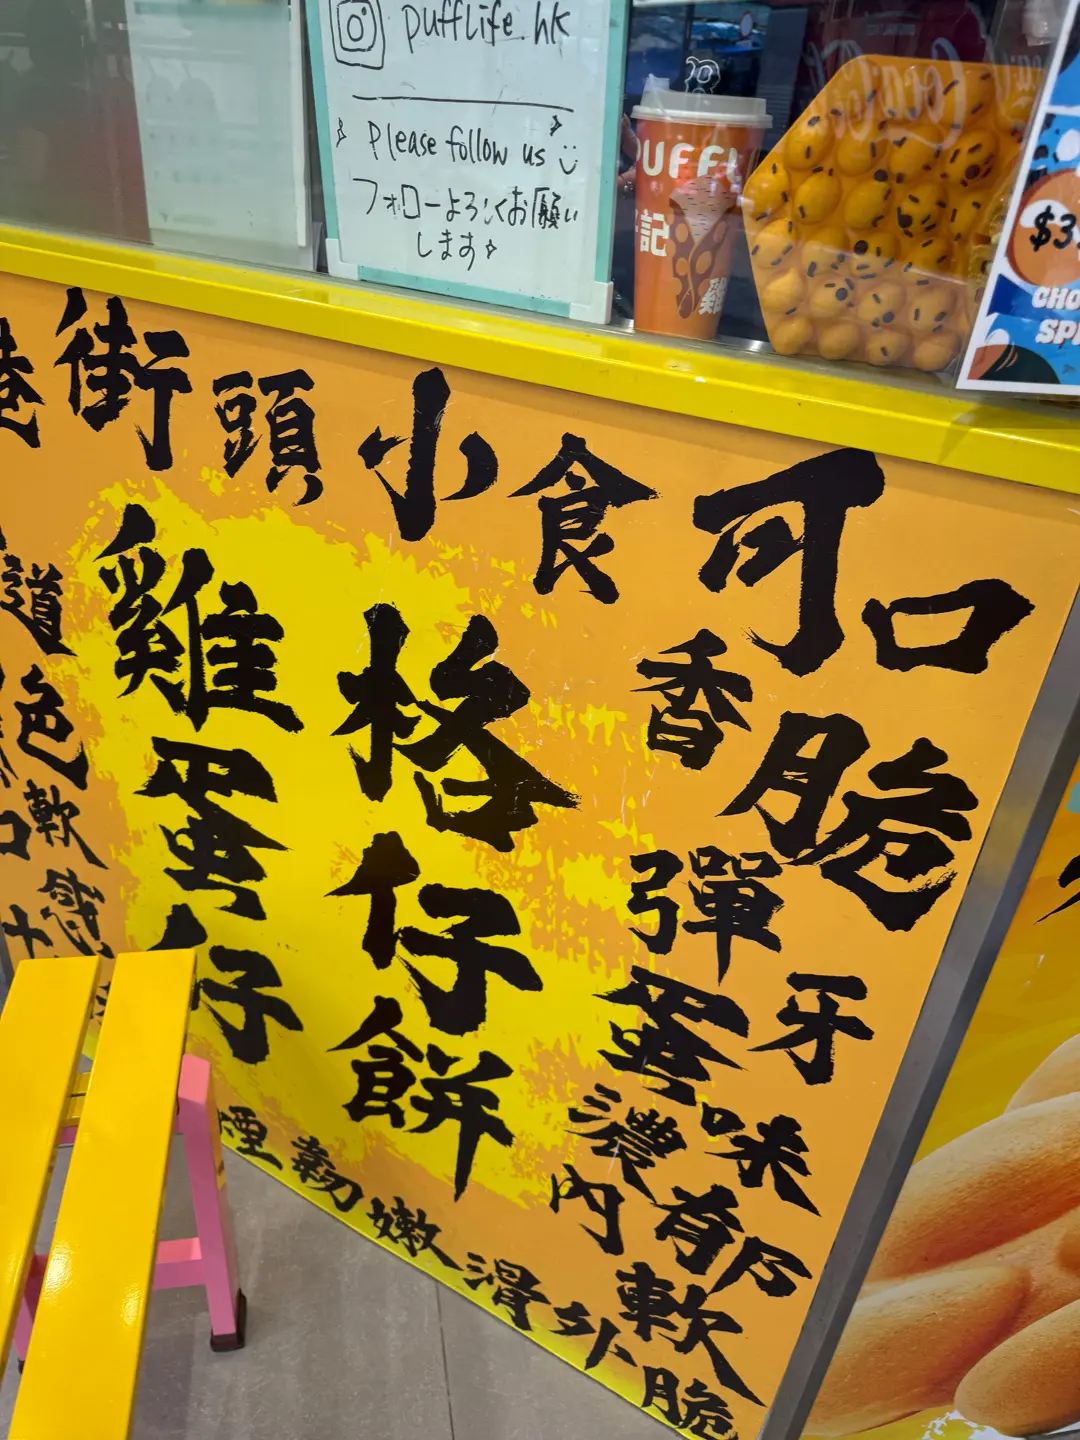 pufflife.hk
Please follow us
フォローよろしくお願い
します
PUFFL
記
雞
$3
CHO
SP
港街頭小食可口
雞蛋仔
格仔餅
香脆
彈牙
蛋味
濃郁
內軟
有
外脆
煙韌嫩滑
道
色
軟
感
口